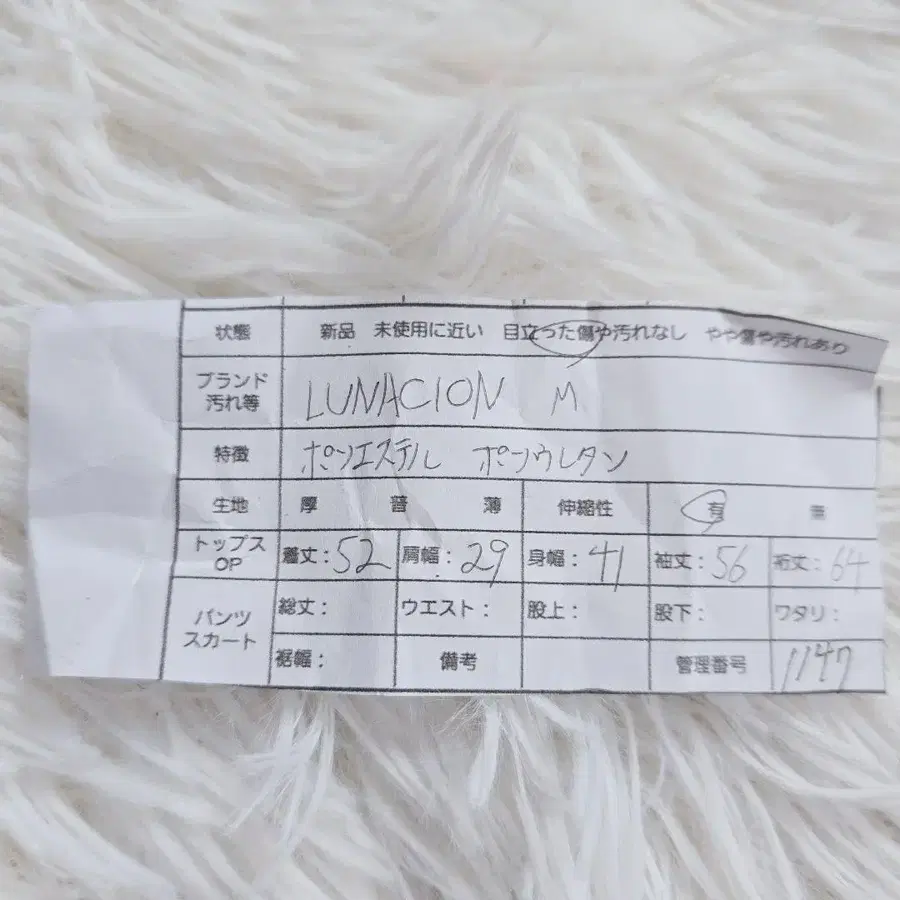 状態 新品 未使用に近い 目立った傷や汚れなし やや傷や汚れあり
ブランド 汚れ等 LUNACION M
特徴 ポリエステル ポリウレタン
生地 厚 普 薄 伸縮性 有 無
トップス OP 着丈:52 肩幅:29 身幅:41 袖丈:56 裄丈:64
パンツ スカート 総丈: ウエスト: 股上: 股下: ワタリ:
裾幅: 備考 管理番号 1147